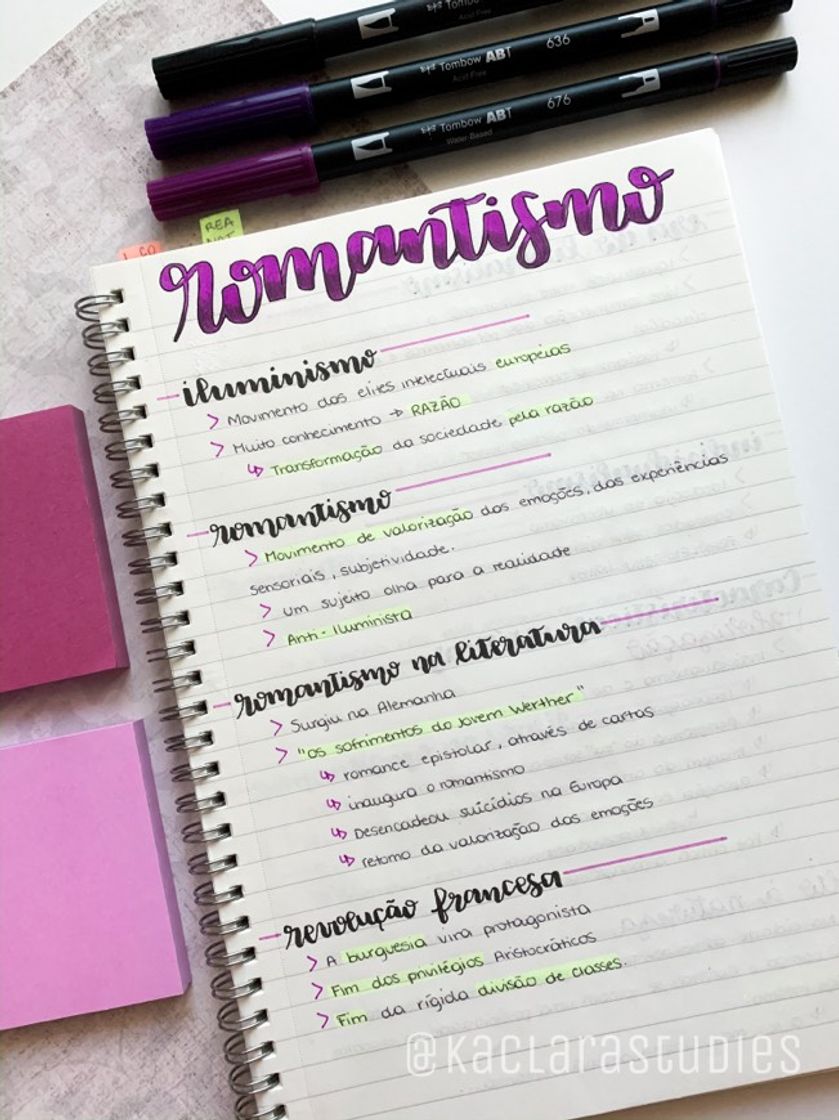 Acid Free
Tombow ABT 636
Acid Free
Tombow ABT 676
Water-Based
REA
romantismo
iluminismo
> Movimento das elites intelectuais européias
> Muito conhecimento → RAZÃO
↳ Transformação da sociedade pela razão
romantismo
> Movimento de valorização das emoções, das experiências
sensoriais, subjetividade.
> um sujeito olha para a realidade
> Anti-iluminista
romantismo na literatura
> Surgiu na Alemanha
> "os sofrimentos do Jovem Werther"
↳ romance epistolar, através de cartas
↳ inaugura o romantismo
↳ Desencadeou suicídios na Europa
↳ retomo da valorização das emoções
revolução francesa
> A burguesia vira protagonista
> Fim dos privilégios Aristocráticos
> Fim da rígida divisão de classes.
@KACLARASTUDIES